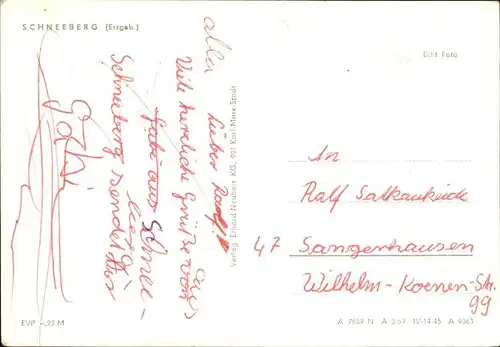 SCHNEEBERG (Erzgeb.)
Lieber Ralf!
Viele herzliche Grüße von
Gabi aus Schnee-
Schneeberg sendet Dir
aus
alla
Gabi
Verlag Erhard Neubert KG, 901 Karl-Marx-Stadt
Echt Foto
An
Ralf
47 Sangerhausen
Wilhelm-Koenen-Str.
99
EVP -,20 M
A 7659 N A 2/69 IV-14-45 A 9363